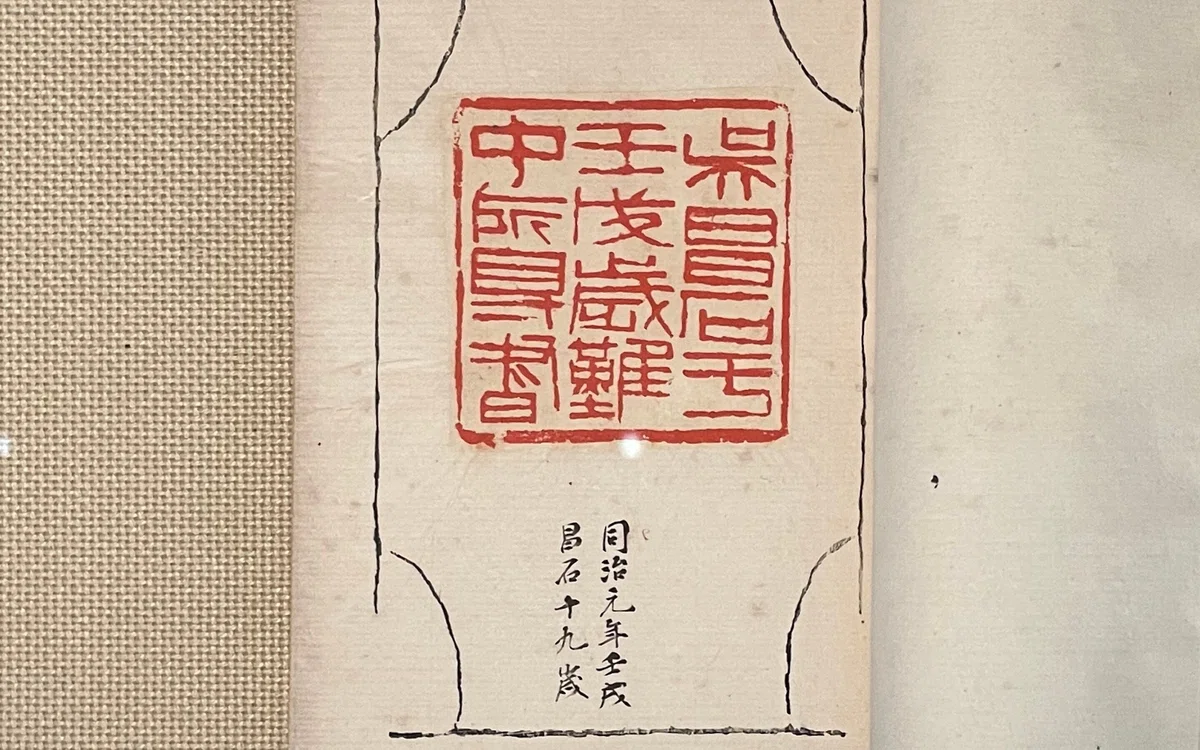 吳昌石于
壬戌歲難
中所㝵書
同治元年壬戌
昌石十九歲